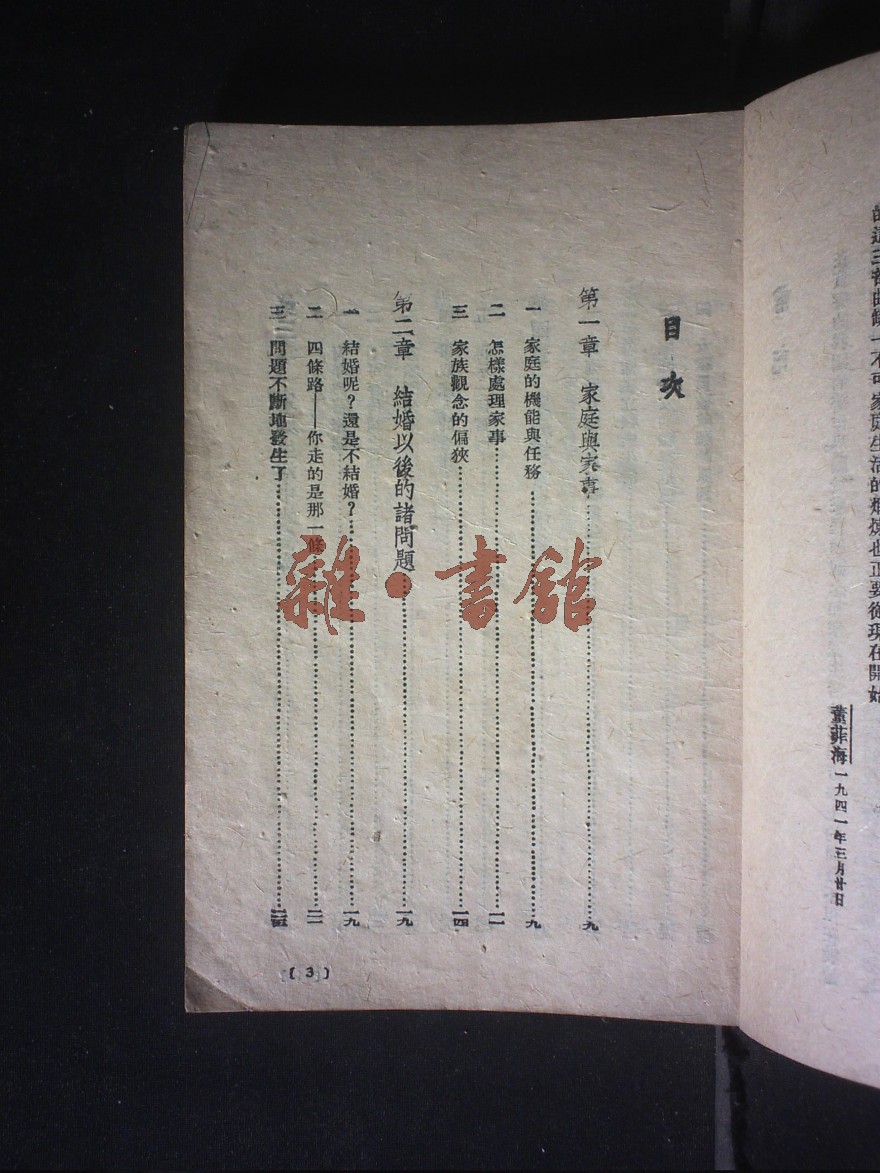 的這三部曲缺一不可家庭生活的鍛煉也正要從現在開始
董菲海 一九四一年三月廿日
目次
第一章 家庭與家事……九
一 家庭的機能與任務……九
二 怎樣處理家事……一一
三 家族觀念的偏狹……一四
第二章 結婚以後的諸問題……一九
一 結婚呢?還是不結婚?……一九
二 四條路——你走的是那一條……
三 問題不斷地發生了……
〔3〕
雜·書館